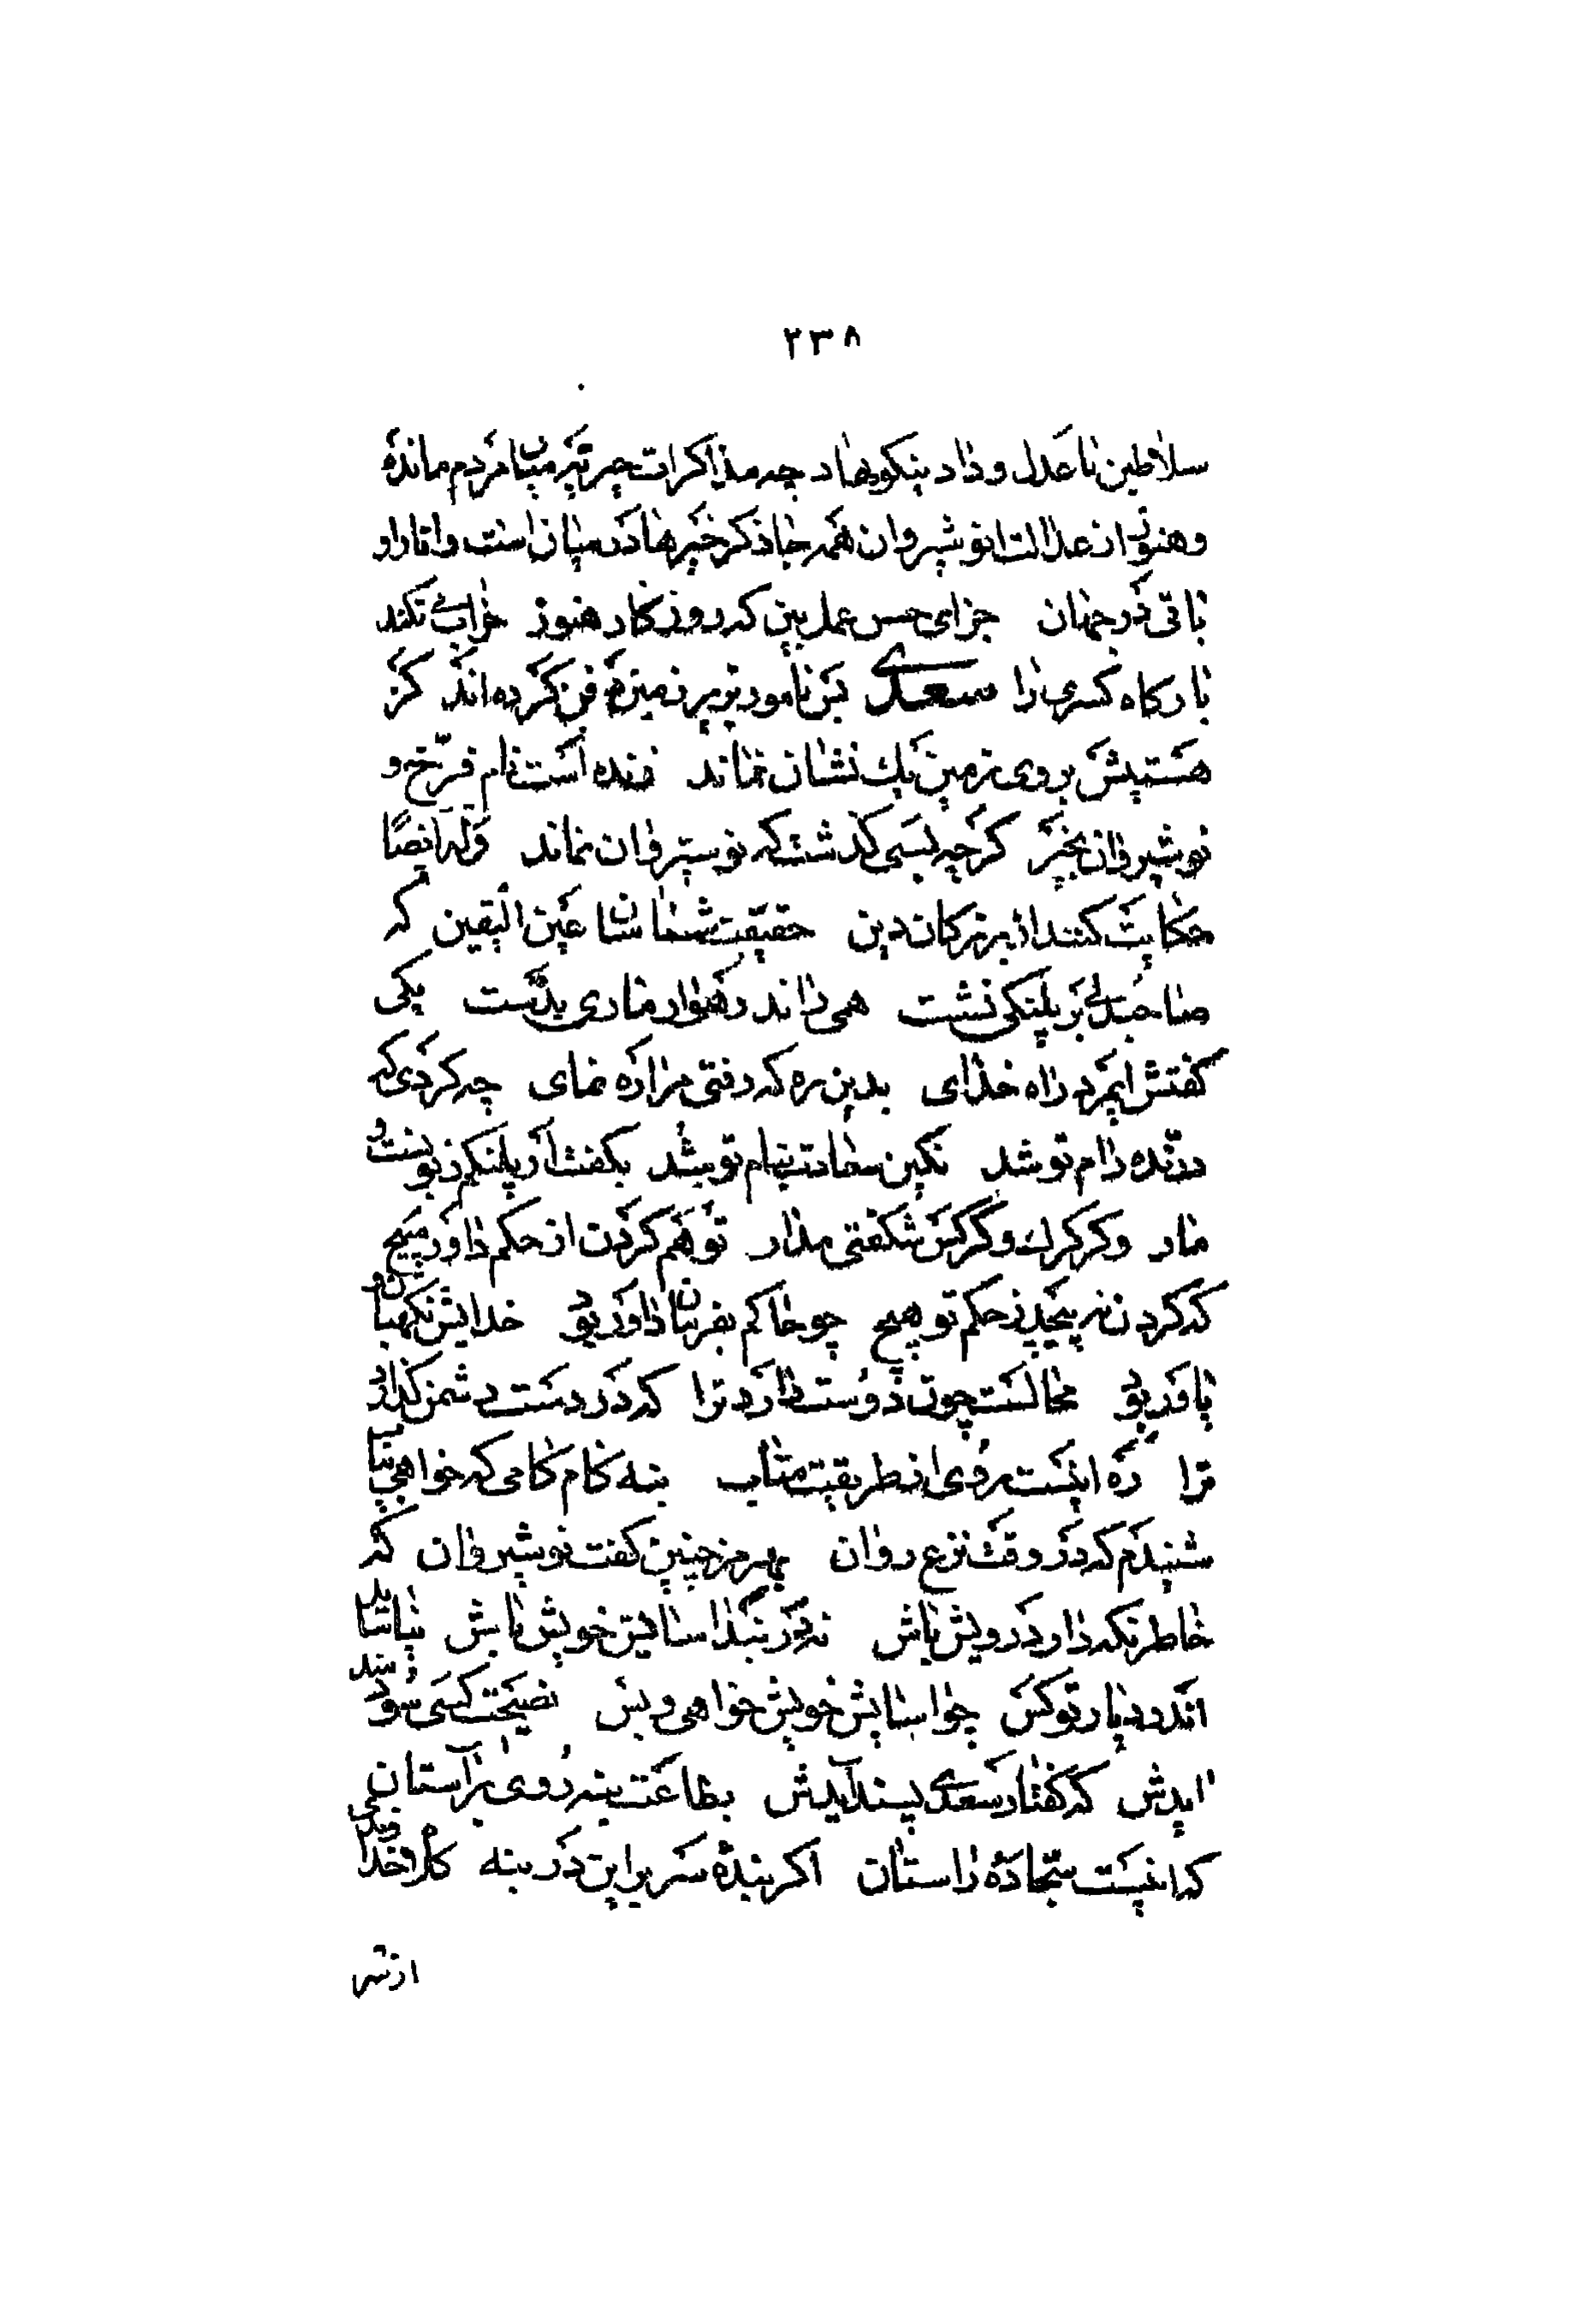 ٢٣٨
سلاطین با عدل و داد نیکو نهاد چه مذاکرات خیریه میان مردم مانده
و هنوز از عدالت انوشیروان همه جا ذکر خیرها در میان است و اثار او
باقی در جهان جزای حسن عمل بین که روزکار هنوز خراب می نکند
بارکاه کسری را سعدی بس نامور بزیر زمین دفن کرده اند کز
هستیش بروی زمین یک نشان نماند زنده است نام فرّخ
نوشیروان بخیر کرچه بسی کذشت که نوشیروان نماند وله ایضًا
حکایت کنند از بزرکان دین حقیقت شناسان عین الیقین که
صاحبدلی بر پلنکی نشست همی راند رهوار ماری بدست یکی
کفتش ایمرد راه خدای بدین ره که رفتی مرا ره نمای چه کردی که
درّنده رام تو شد نکین سعادت بنام تو شد بکفت ار پلنکم زبونست و
مار و کر کرک و کرکس شکفتی مدار تو هم کردن از حکم داور مپیچ
که کردن نه پیچد ز حکم تو هیچ چو حاکم بفرمان داور بود خدایش نکهبان و
یاور بود محالست چون دوست دارد ترا که در دست دشمن کذارد
ترا ره اینست روی از طریقت متاب بنه کام کامی که خواهی بیاب
شنیدم که در وقت نزع روان بهرمز چنین کفت نوشیروان که
خاطر نکه دار درویش باش نه در بند اسایش خویش باش نیاساید
اندر دیار تو کس چو اسایش خویش خواهی و بس نصیحت کسی سودمند
ایدش که کفتار سعدی پسند آیدش بطاعت بنه روی بر آستان
که اینست سجّاده راستان اکر بنده سر براین در بنه کلاه خداوندی
از سر